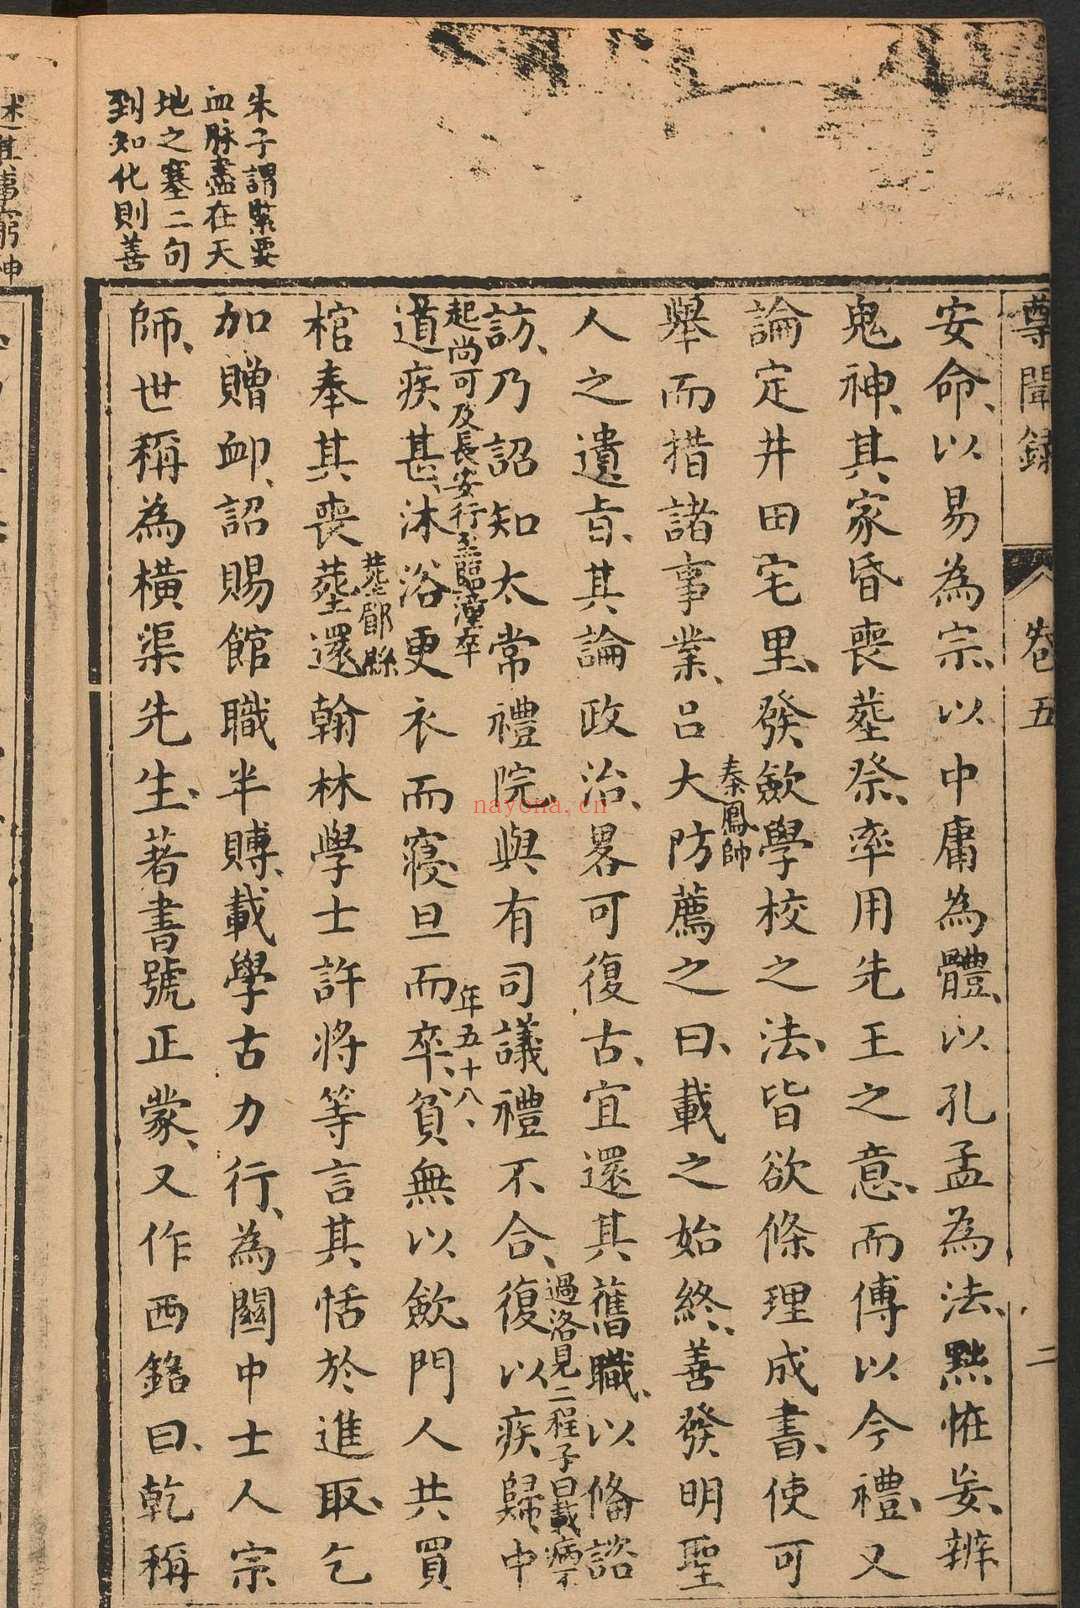 尊聞錄 卷五 二
安命、以易為宗、以中庸為體、以孔孟為法、黜恠妄、辨
鬼神、其家昏喪塟祭、率用先王之意、而傅以今禮、又
論定井田宅里、發歛學校之法、皆欲條理成書、使可
舉而措諸事業、呂大防薦之曰、載之始終、善發明聖
秦鳳帥
人之遺旨、其論政治、畧可復古、宜還其舊職、以俻諮
訪、乃詔知太常禮院、與有司議禮不合、復以疾歸、中
過洛見二程子曰載病不
起尚可及長安行至臨潼卒
道疾甚、沐浴更衣而寢、旦而卒、貧無以歛、門人共買
年五十八、
塟郿縣
棺奉其喪塟還、翰林學士許將等言其恬於進取、乞
加贈卹、詔賜館職半賻、載學古力行、為關中士人宗
師、世稱為橫渠先生、著書號正蒙、又作西銘曰、乾稱
朱子謂緊要
血脉盡在天
地之塞二句
到知化則善
述其事窮神
nayona.cn